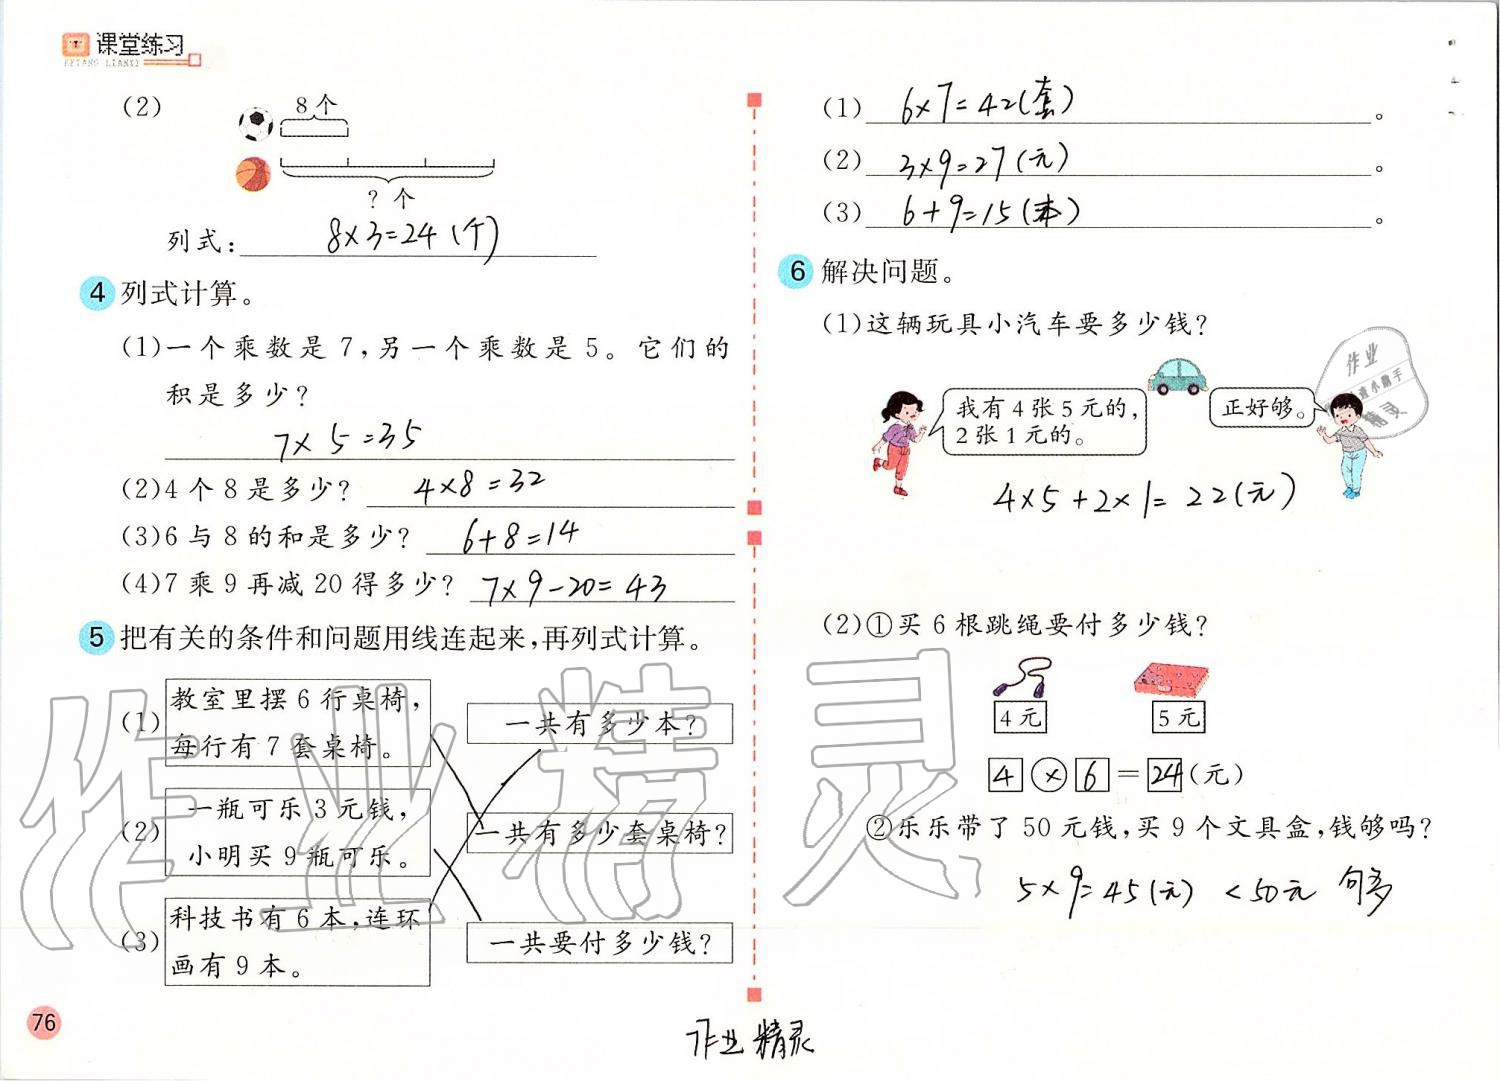 课堂练习
KETANG LIANXI
(2)
8个
?个
列式: 8×3=24(个)
4 列式计算。
(1)一个乘数是7,另一个乘数是5。它们的
积是多少?
7×5=35
(2)4个8是多少? 4×8=32
(3)6与8的和是多少? 6+8=14
(4)7乘9再减20得多少? 7×9-20=43
5 把有关的条件和问题用线连起来,再列式计算。
(1) 教室里摆6行桌椅,
每行有7套桌椅。
一共有多少本?
(2) 一瓶可乐3元钱,
小明买9瓶可乐。
一共有多少套桌椅?
(3) 科技书有6本,连环
画有9本。
一共要付多少钱?
76
(1) 6×7=42(套)。
(2) 3×9=27(元)。
(3) 6+9=15(本)。
6 解决问题。
(1)这辆玩具小汽车要多少钱?
我有4张5元的,
2张1元的。
正好够。
4×5+2×1=22(元)
(2)①买6根跳绳要付多少钱?
4元 5元
4×6=24(元)
②乐乐带了50元钱,买9个文具盒,钱够吗?
5×9=45(元) <50元 够
作业精灵
作业精灵
作业
精灵